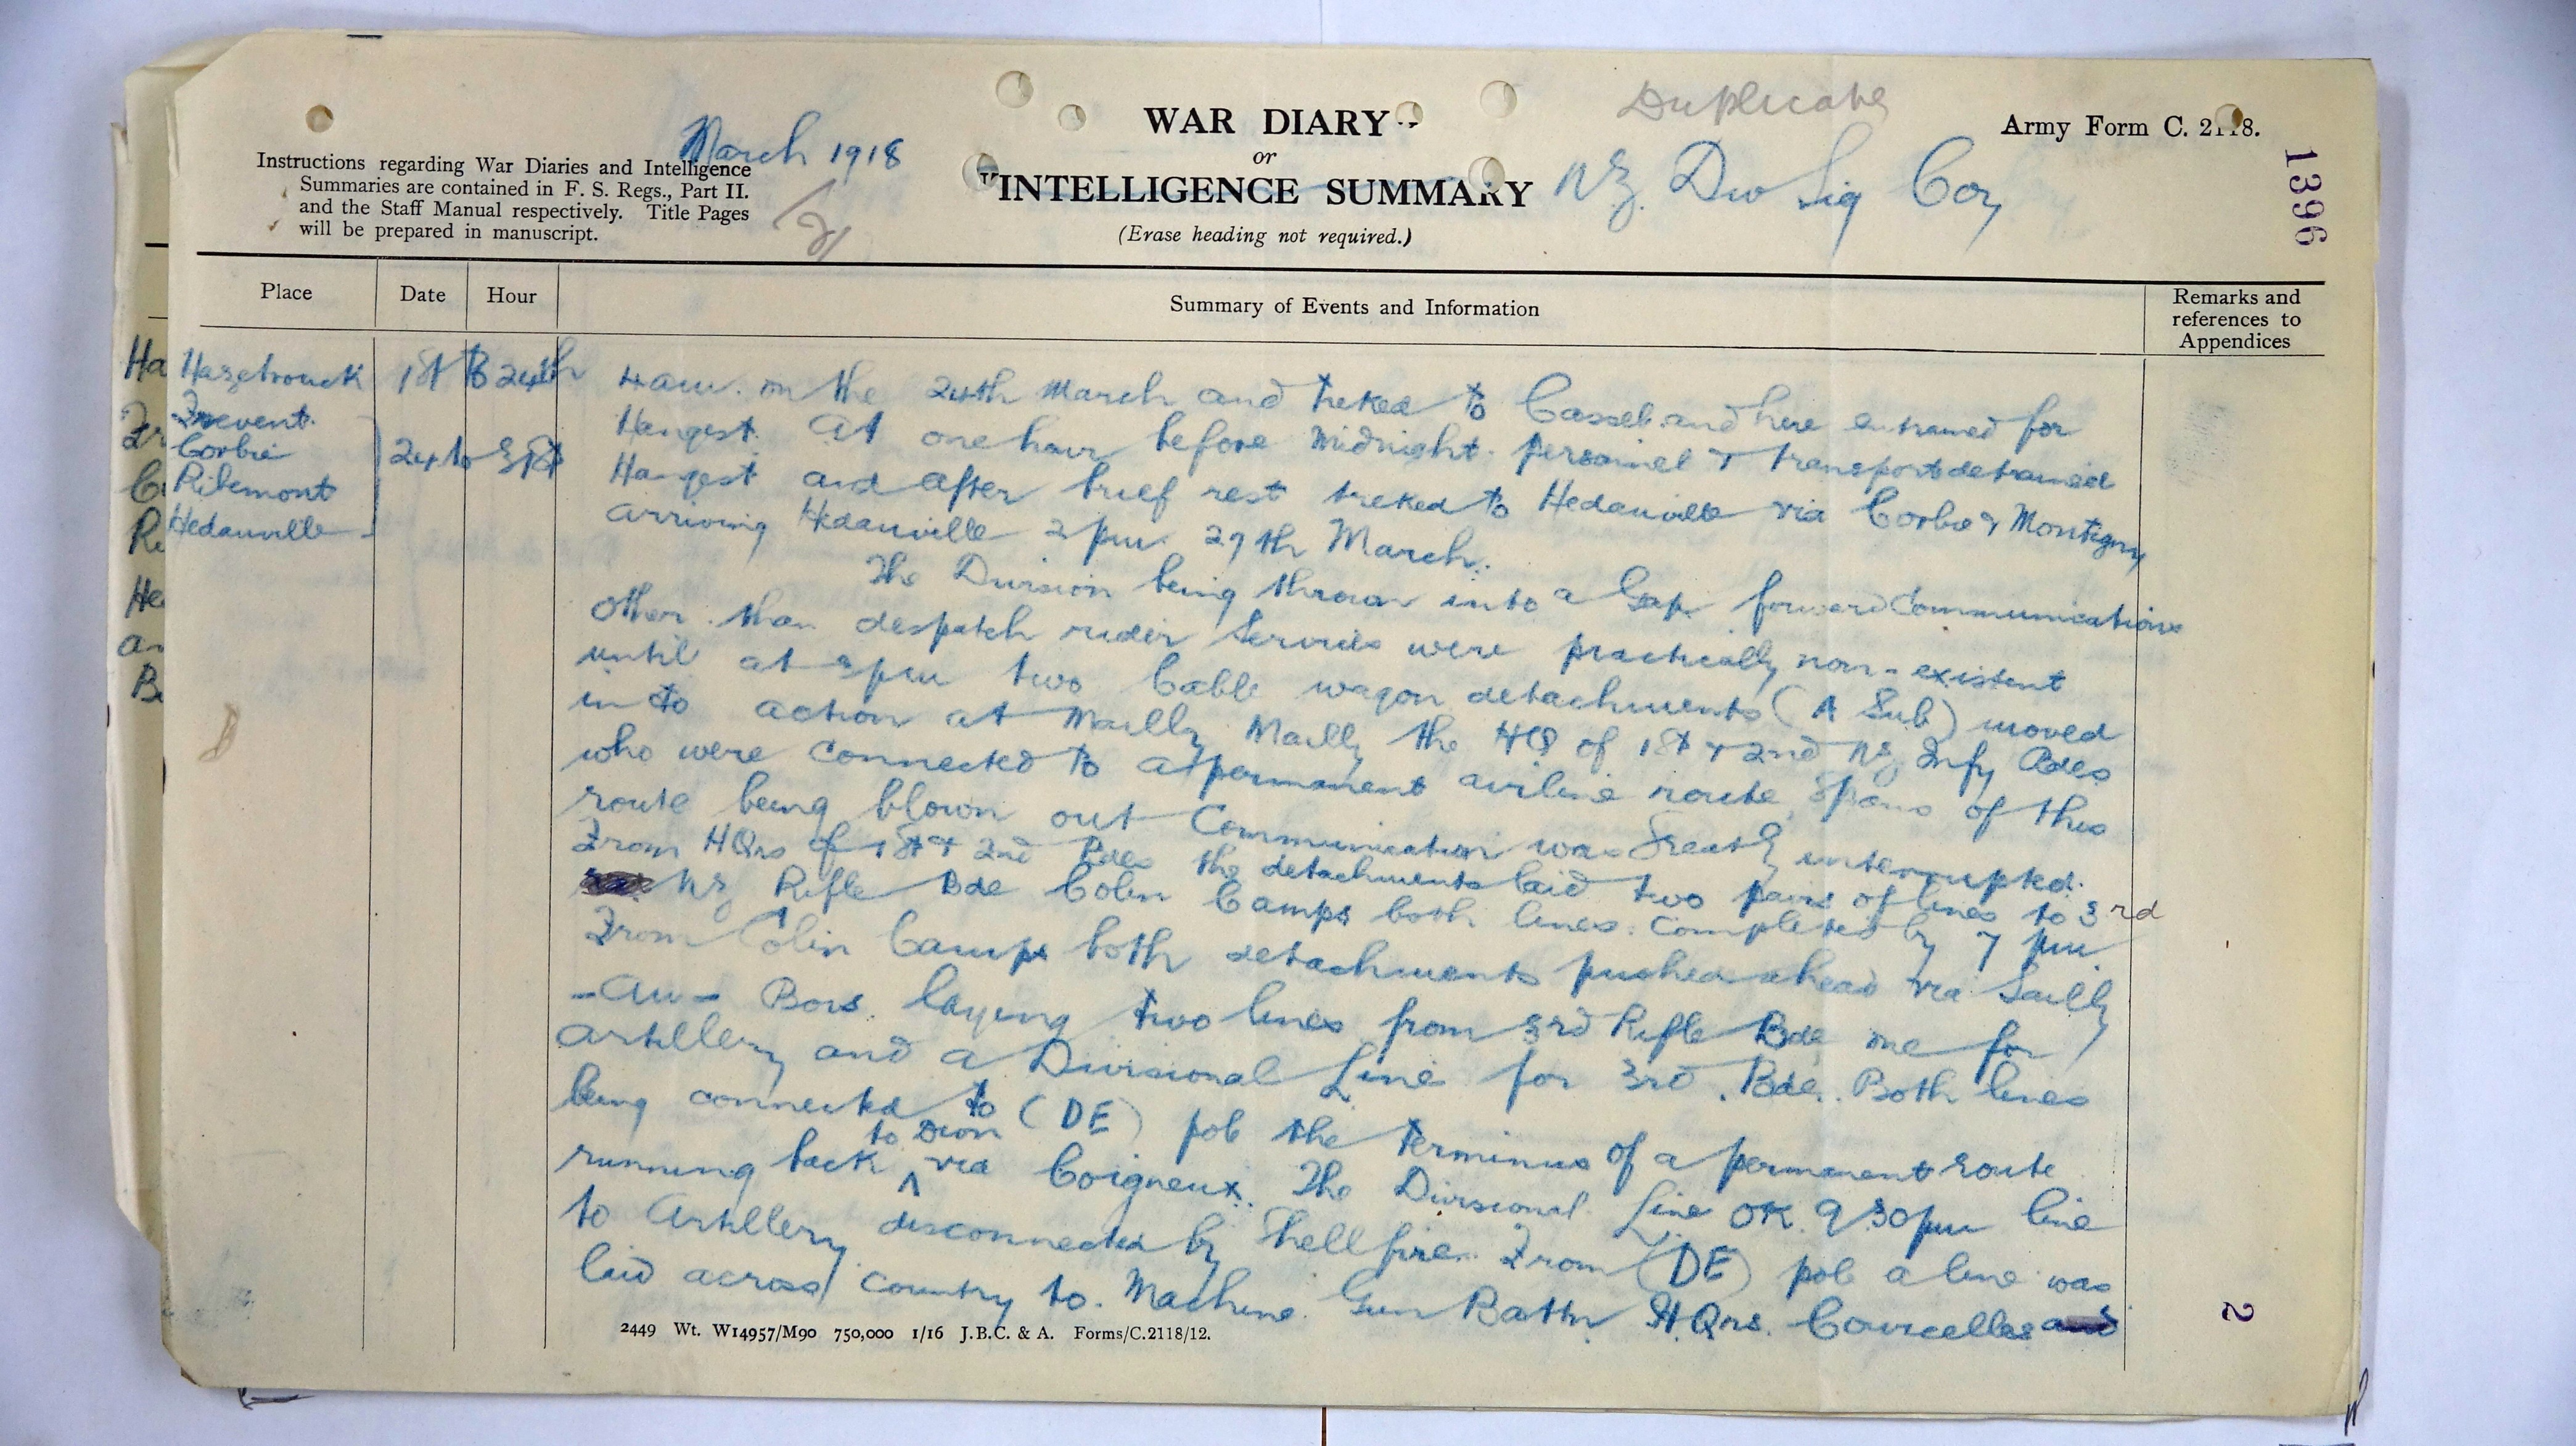 Duplicate
March 1918
WAR DIARY
or
INTELLIGENCE SUMMARY
(Erase heading not required.)
NZ Div Sig Coy
Army Form C. 2118.
1396
Instructions regarding War Diaries and Intelligence
Summaries are contained in F. S. Regs., Part II.
and the Staff Manual respectively. Title Pages
will be prepared in manuscript.
Place Date Hour Summary of Events and Information Remarks and references to Appendices
Hazebrouck 1st to 24th
Frevent
Corbie
24 to 31st
Ribemont
Hedauville
4 am. on the 24th March and treked to Cassel and here entrained for
Hangest. At one hour before midnight. personnel & transport detrained
Hangest and after brief rest treked to Hedauville via Corbie & Montigny
arriving Hedauville 2 pm. 27th March.
The Division being thrown into a Gap forward Communications
other than despatch rider services were practically non-existent
until at 3 pm two Cable wagon detachments (A Sub) moved
in to action at Mailly Mailly the HQ of 1st & 2nd NZ Infy Bdes
who were connected to a permanent airline route spans of this
route being blown out Communication was Greatly interrupted.
From HQrs of 1st & 2nd Bdes the detachments laid two pairs of lines to 3rd
NZ Rifle Bde Colin Camps both lines. completed by 7 pm.
From Colin Camps both detachments pushed ahead via Sailly
-Au- Bois laying two lines from 3rd Rifle Bde one for
Artillery and a Divisional Line for 3rd. Bde. Both lines
being connected to (DE) pole the terminus of a permanent route
running back to Dion via Coigneux. The Divisional Line OK 9.30pm line
to Artillery disconnected by Shell fire. From (DE) pole a line was
laid across country to. Machine Gun Battn HQrs. Courcelles and
2449 Wt. W14957/M90 750,000 1/16 J.B.C. & A. Forms/C.2118/12.
2
Ha
Fr
Co
Ri
He
an